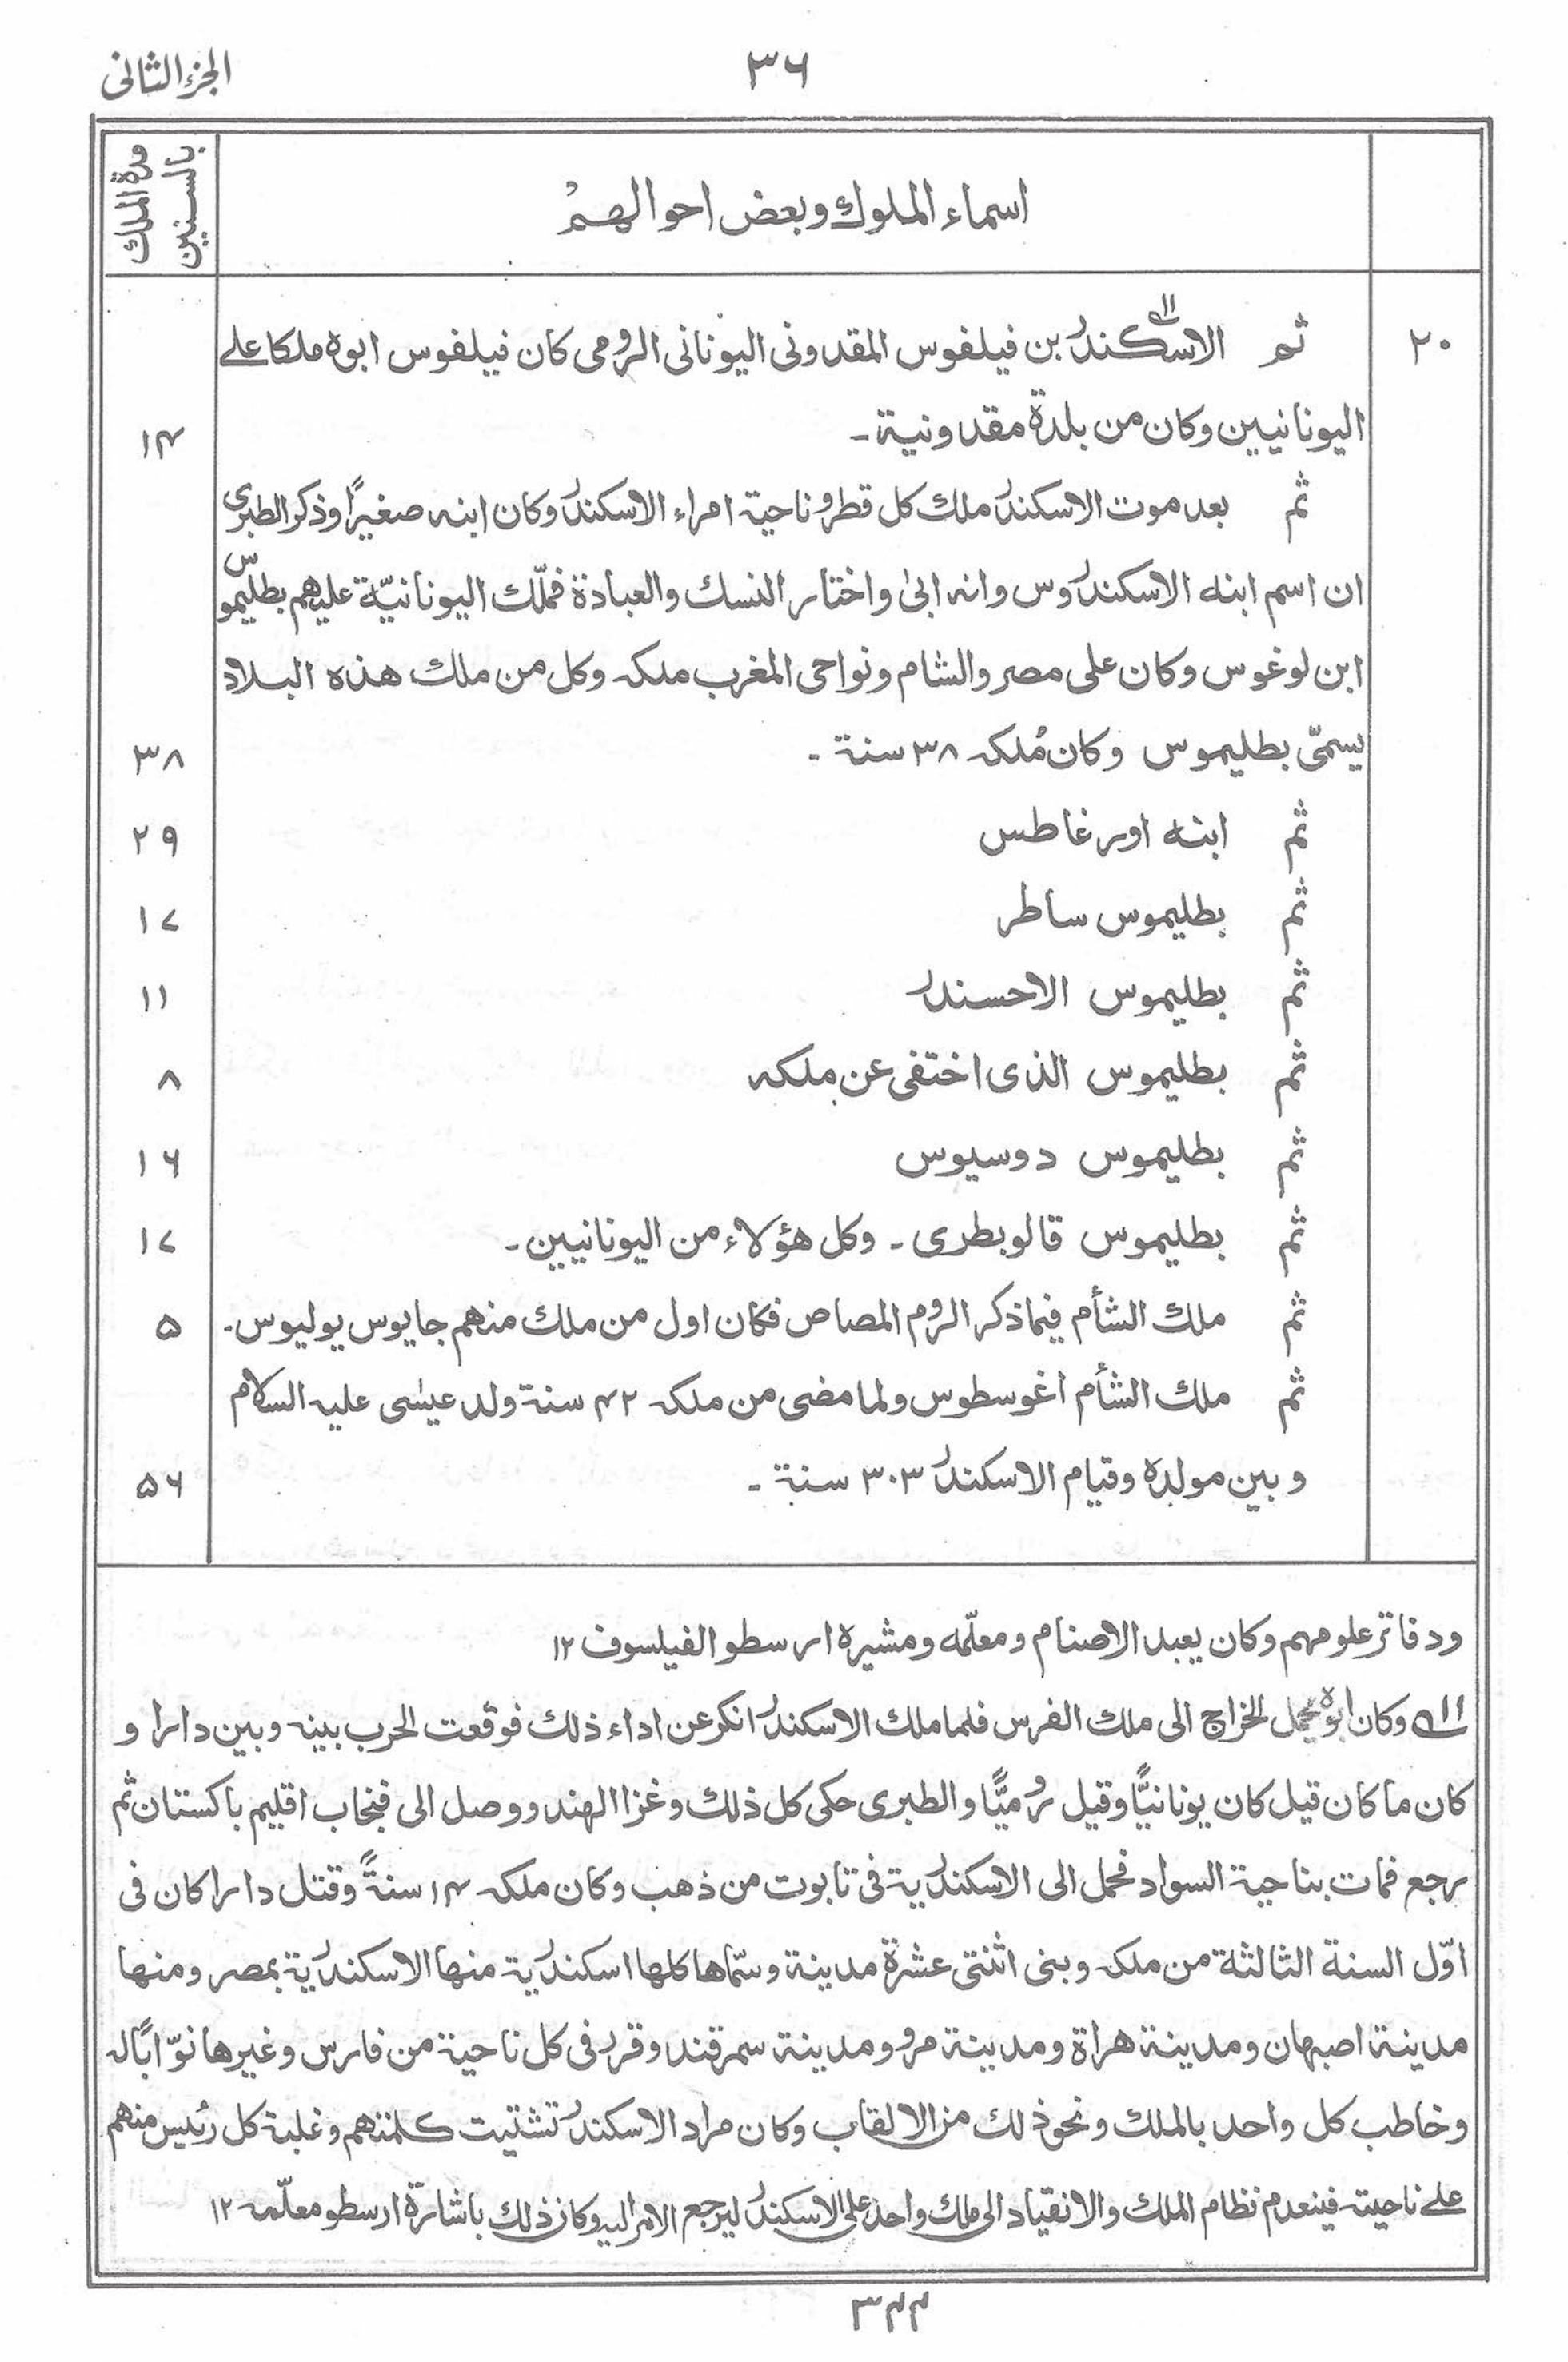 ٣٦
الجزء الثانى
اسماء الملوك وبعض احوالهم
مدة الملك بالسنين
٢٠
ثم الاسكندر بن فيلفوس المقدونى اليونانى الرومى كان فيلفوس ابوه ملكا على
١١
اليونانيين وكان من بلدة مقدونية ـ ١٤
ثم بعد موت الاسكندر ملك كل قطر وناحية امراء الاسكندر وكان ابنه صغيرًا وذكر الطبرى
ان اسم ابنه الاسكندروس وانه ابىٰ واختار النسك والعبادة فملّك اليونانيّة عليهم بطليموس
ابن لوغوس وكان على مصر والشام ونواحى المغرب ملكه وكل من ملك هذه البلاد
يسمىّ بطليموس وكان مُلكه ٣٨ سنة ـ ٣٨
ثم ابنه اورغاطس ٢٩
ثم بطليموس ساطر ١٧
ثم بطليموس الاحسندر ١١
ثم بطليموس الذى اختفى عن ملكه ٨
ثم بطليموس دوسيوس ١٦
ثم بطليموس قالوبطرى ـ وكل هؤلاء من اليونانيين ـ ١٧
ثم ملك الشأم فيما ذكر الروم المصاص فكان اول من ملك منهم جايوس يوليوس ـ ٥
ثم ملك الشأم اغوسطوس ولما مضى من ملكه ٤٢ سنة ولد عيسٰى عليه السلام
وبين مولده وقيام الاسكندر ٣٠٣ سنة ـ ٥٦
ودفاتر علومهم وكان يعبد الاصنام ومعلّمه ومشيره ارسطو الفيلسوف ١٢
١١ وكان ابوه يحمل الخراج الى ملك الفرس فلما ملك الاسكندر انكر عن اداء ذلك فوقعت الحرب بينه وبين دارا و
كان ما كان قيل كان يونانيًّا وقيل رُوميًّا والطبرى حكى كل ذلك وغزا الهند ووصل الى فنجاب اقليم باكستان ثم
رجع فمات بناحية السواد فحمل الى الاسكندرية فى تابوت من ذهب وكان ملكه ١٤ سنةً وقتل دارا كان فى
اوّل السنة الثالثة من ملكه وبنى اثنتى عشرة مدينة وسمّاها كلها اسكندرية منها الاسكندرية بمصر ومنها
مدينة اصبهان ومدينة هراة ومدينة مرو ومدينة سمرقند وقرر فى كل ناحية من فارس وغيرها نوّابًا له
وخاطب كل واحد بالملك ونحو ذلك من الالقاب وكان مراد الاسكندر تشتيت كلمتهم وغلبة كل رئيس منهم
على ناحيته فينعدم نظام الملك والانقياد الى ملك واحد على الاسكندر ليرجع الامر اليه وكان ذلك باشارة ارسطو معلّمه ١٢
٣٤٤